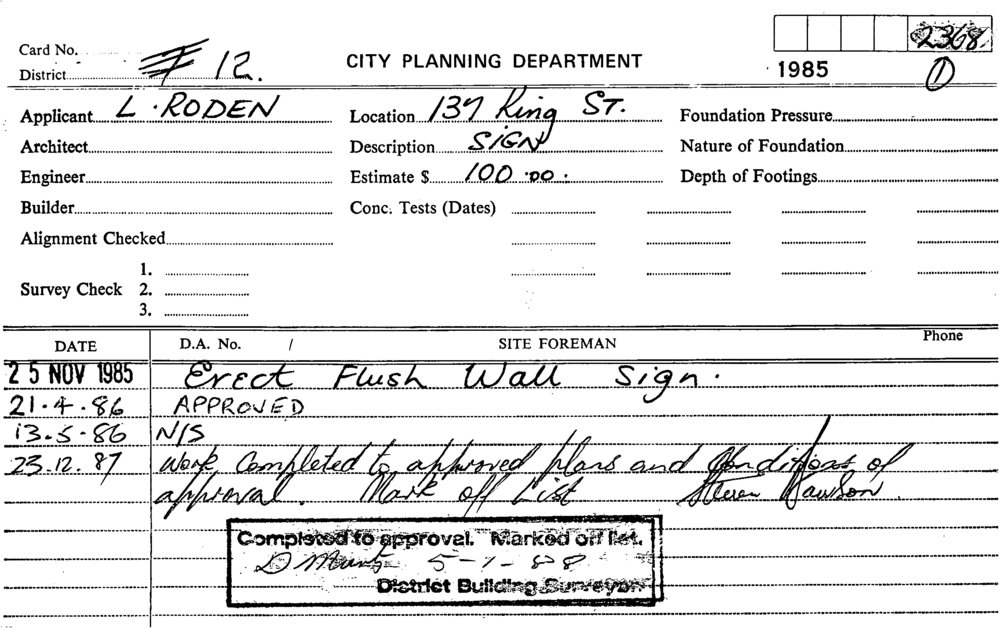 2368
Card No.
District 12.
CITY PLANNING DEPARTMENT
1985 1
Applicant L. RODEN
Location 137 King ST.
Foundation Pressure
Architect
Description SIGN
Nature of Foundation
Engineer
Estimate $ 100.00.
Depth of Footings
Builder
Conc. Tests (Dates)
Alignment Checked
1.
Survey Check 2.
3.
DATE D.A. No. / SITE FOREMAN Phone
25 NOV 1985 Erect Flush Wall Sign.
21.4.86 APPROVED
13.5.86 N/S
23.12.87 Work Completed to approved plans and Conditions of
approval. Mark off List Steven Rawson.
Completed to approval. Marked off list.
5-1-88
District Building Surveyor